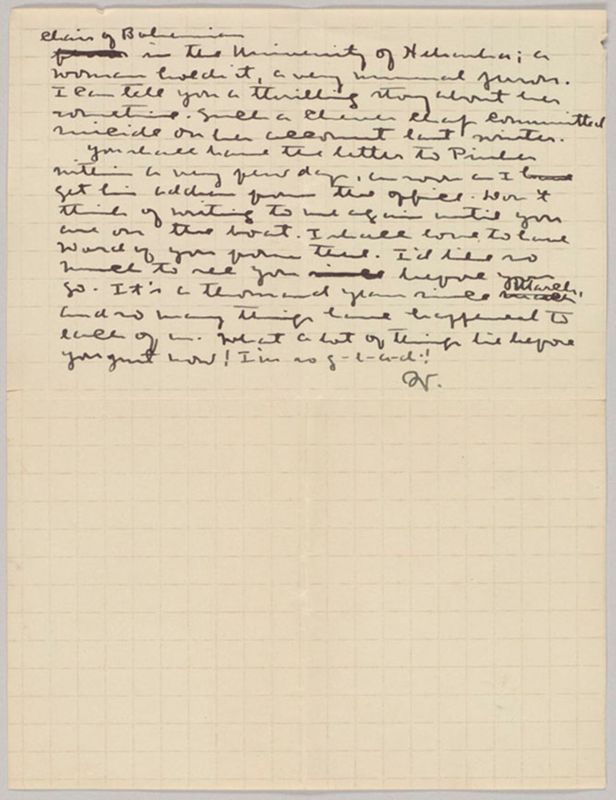 chair of Bohemian
in the University of Nebraska; a
woman holds it, a very unusual person.
I can tell you a thrilling story about her
sometime. Such a clever chap committed
suicide on her account last winter.
You shall have the letter to Pinker
within a very few days, as soon as I
get his address from the office. Don't
think of writing to me again until you
are on the boat. I shall love to have
word of you from there. I'd like so
much to see you before you
go. It's a thousand years since March,
and so many things have happened to
each of us. What a lot of things lie before
you just now! I'm so g-l-a-d!
W.